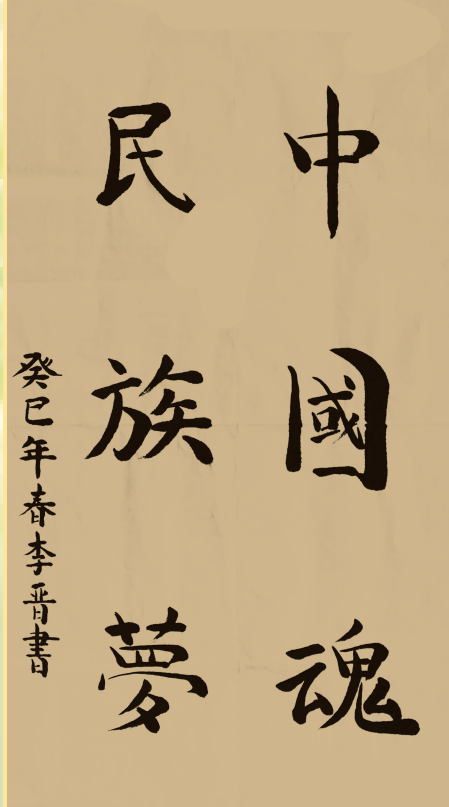 中國魂
民族夢
癸巳年春李晋書